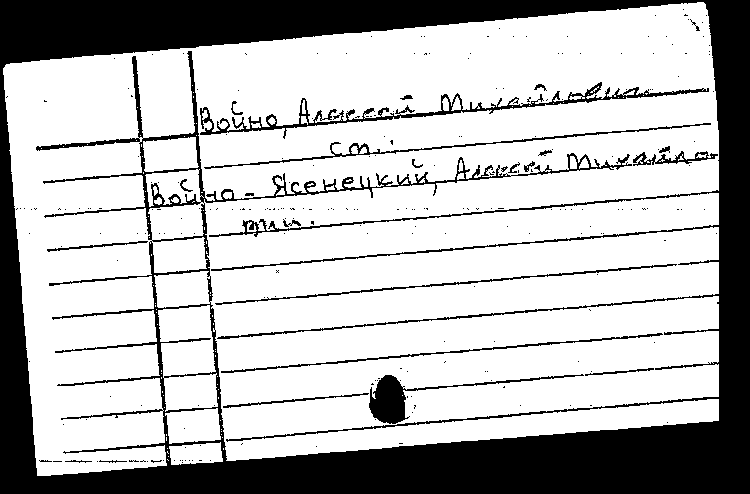 Войно, Алексей Михайлович
см.:
Войно-Ясенецкий, Алексей Михайло-
вич.